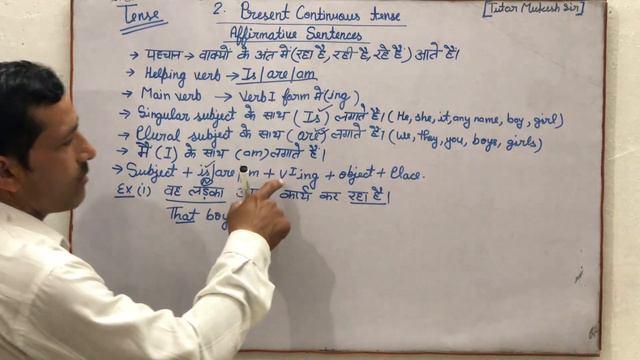 Tense
2. Present Continuous tense
[Tutor Mukesh Sir]
Affirmative Sentences
→ पहचान → वाक्यों के अंत में (रहा है, रही है, रहे है) आते हैं।
→ Helping verb → Is/are/am
→ Main verb → Verb I form में (ing)
→ Singular subject के साथ (Is) लगाते है। (He, she, it, any name, boy, girl)
→ Plural subject के साथ (are) लगाते है। (we, they, you, boys, girls)
→ मैं (I) के साथ (am) लगाते हैं।
→ Subject + is/are/am + vIing + object + Place.
Ex (i) वह लड़का कार्य कर रहा है।
That boy